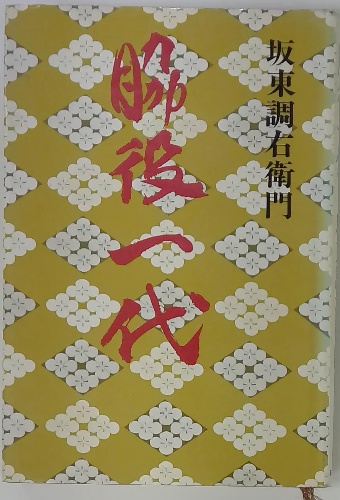 坂東調右衛門
脇役一代